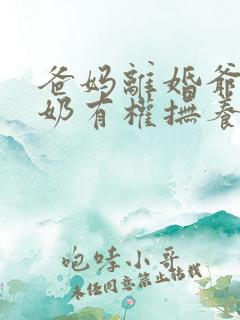 爸妈離婚爺
奶有權撫養
咆哮小哥
未经同意禁止转载